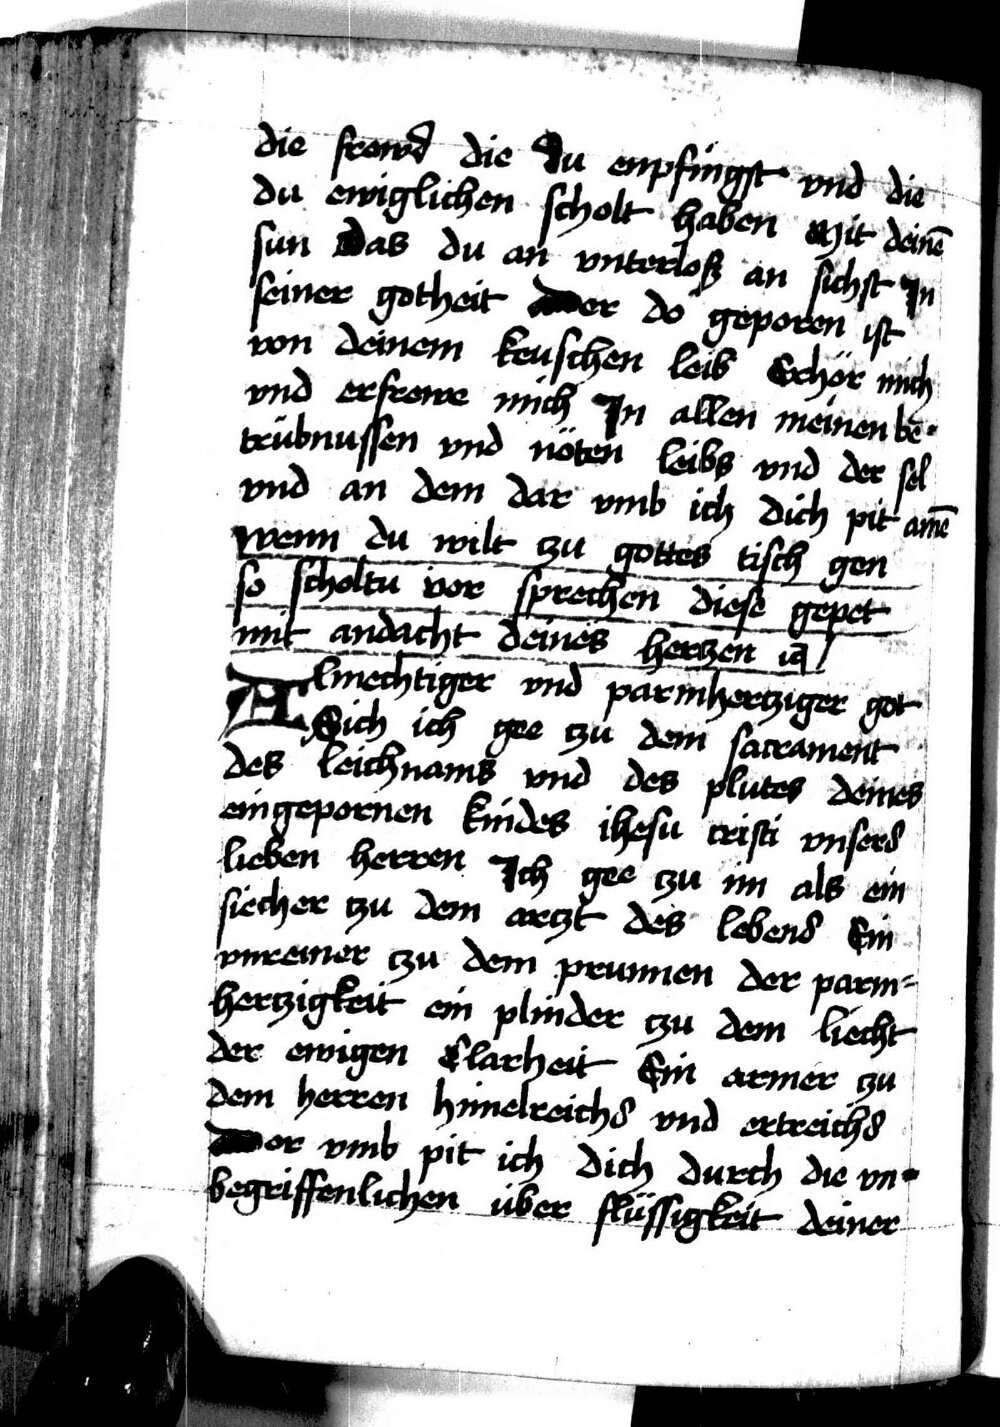 die frewd die Du enpfingst vnd die
du ewiglichen scholt haben Mit deinē
sun Das du an vnterloß an sichst In
seiner gotheit Der do geporen ist
von deinem keuschen leib Erhör mich
vnd erfrewe mich In allen meinen be-
trübnussen vnd nöten leibs vnd der sel
vnd an dem dar vmb ich dich pit amē
wenn du wilt tzu gottes tisch gen
so scholtu vor sprechen diese gepet
mit andacht deines hertzen
Almechtiger vnd parmhertziger got
Sich ich gee tzu dem sacrament
des leichnams vnd des plutes deines
eingepornen kindes ihesu cristi vnsers
lieben herren Ich gee tzu im als ein
siecher tzu dem artzt des lebens Ein
vnreiner tzu dem prunnen der parm-
hertzigkeit ein plinder tzu dem liecht
der ewigen Clarheit Ein armer tzu
dem herren himelreichs vnd ertreichs
Dar vmb pit ich dich durch die vn-
begriffenlichen über flüssigkeit deiner